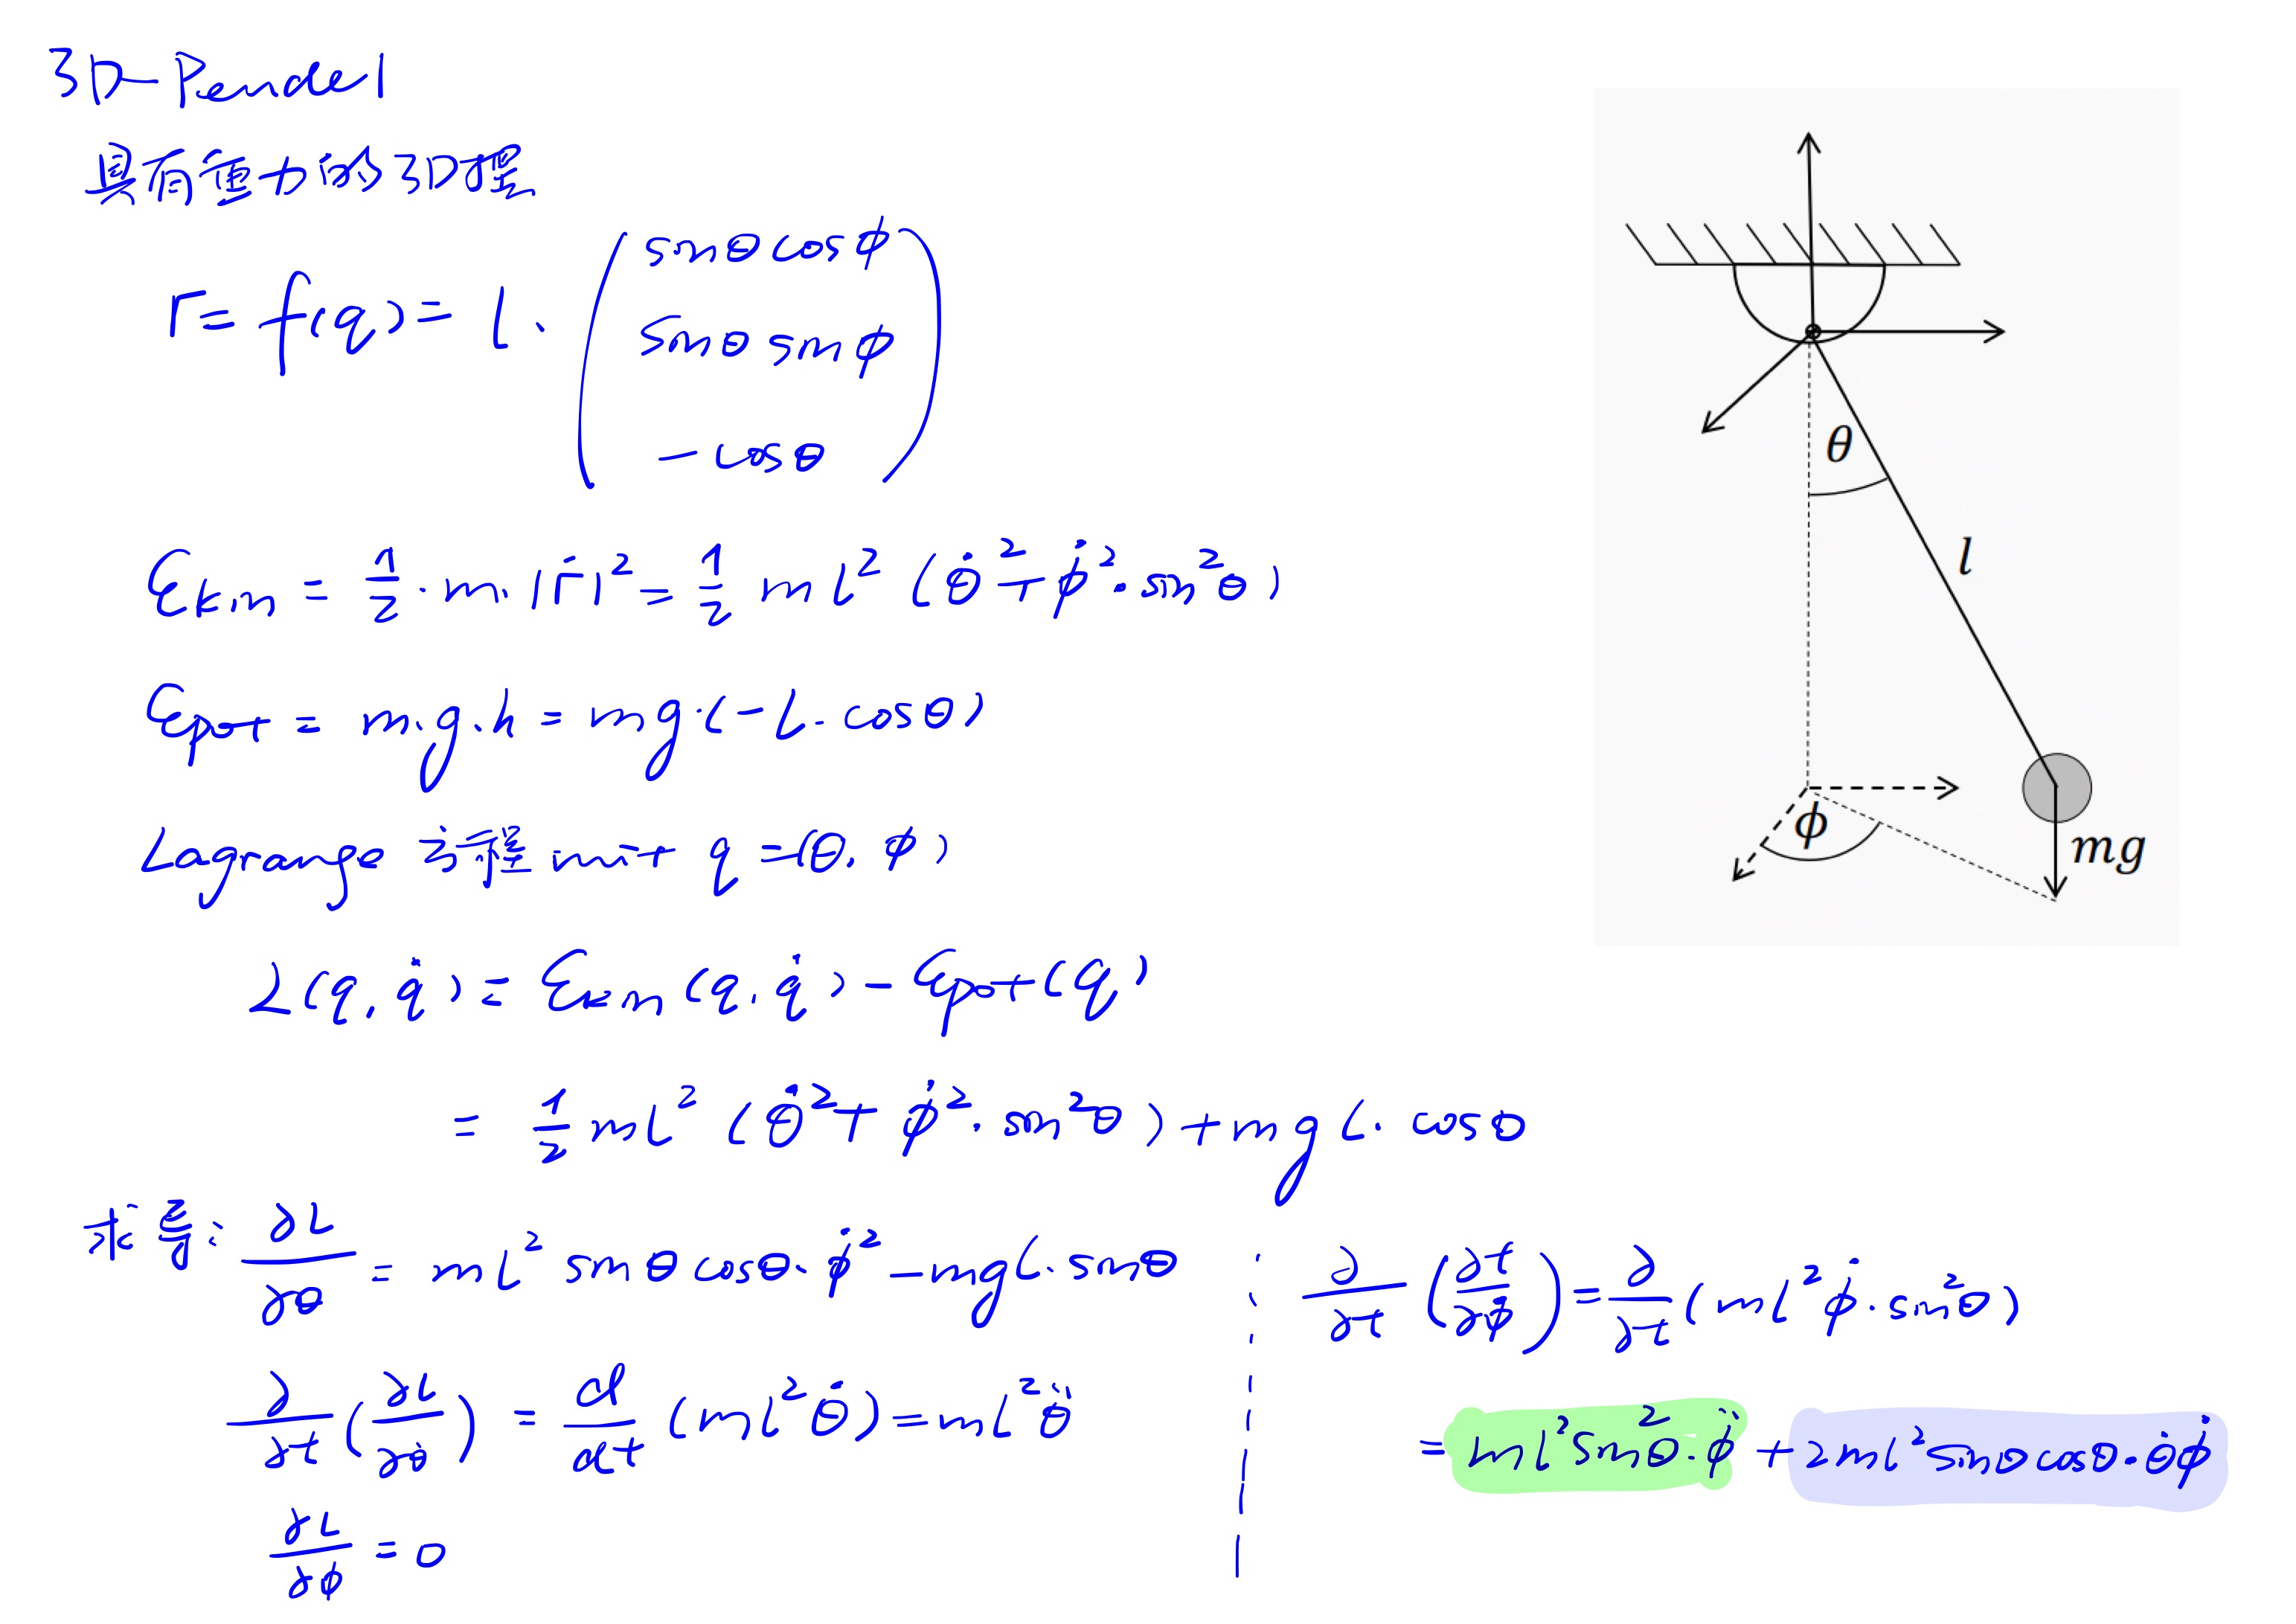 3D-Pendel
具有重力的3D摆
r = f(q) = l · ( sinθ cosφ
sinθ sinφ
- cosθ )
E_kin = 1/2 · m · |ṙ|² = 1/2 m l² (θ̇² + φ̇² · sin²θ)
E_pot = m·g·h = mg·(-l·cosθ)
Lagrange 方程 mit q = (θ, φ)
L(q, q̇) = E_kin(q, q̇) - E_pot(q)
= 1/2 ml² (θ̇² + φ̇² · sin²θ) + mgl · cosθ
求导: ∂L/∂θ = ml² sinθ cosθ · φ̇² - mgl · sinθ
∂/∂t (∂L/∂θ̇) = d/dt (ml²θ̇) = ml²θ̈
∂L/∂φ = 0
∂/∂t (∂t/∂φ̇) = ∂/∂t (ml²φ̇ · sin²θ)
= ml² sin²θ · φ̈ + 2ml² sinθ cosθ · θ̇φ̇
θ
l
φ
mg